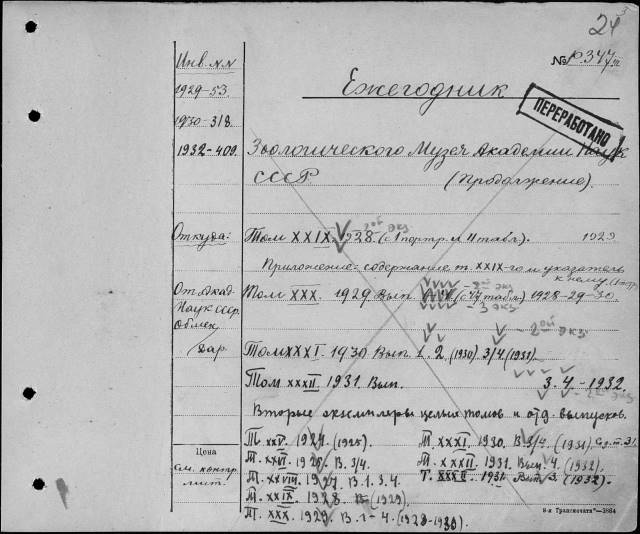 24
№ р.347
Инв. NN
1929-53.
1930-318.
1932-409.
Ежегодник
ПЕРЕРАБОТАНО
Зоологического Музея Академии Наук
СССР (Продолжение).
Откуда:
От Акад.
Наук СССР.
Обмен
Дар
Том XXIX. 1928. (с 1 портр. и 11 табл.). 1929
2ой экз
Приложение: содержание т. XXIX-го и указатель
к нему.
Том XXX. 1929 Вып. (с 47 табл.) 1928-29-30.
- 3 экз
- 2ой экз
Том XXXI. 1930 Вып. 1. 2 (1930). 3/4 (1931).
Том XXXII. 1931. Вып. 3. 4. - 1932.
Вторые экземпляры целых томов и отд. выпусков.
Цена
см. контр.
лист.
Т. XXV. 1924. (1925).
Т. XXVI. 1925. В. 3/4.
Т. XXVIII. 1927 В. 1. 3. 4.
Т. XXIX. 1928. (1929).
Т. XXX. 1929. В. 1-4. (1928-1930).
Т. XXXI. 1930. В. 3/4. (1931).
Т. XXXII. 1931. Вып. 4. (1932).
Т. XXXII. 1931. Вып. 3. (1932).
8-я Транспечать—3864